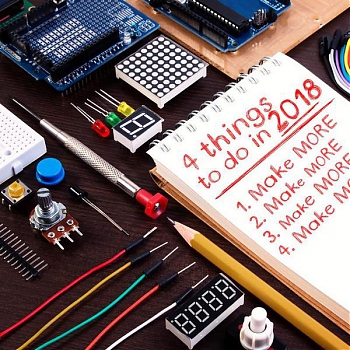 4 things
to do in 2018
1. Make MORE
2. Make MORE
3. Make MORE
4. Make MORE